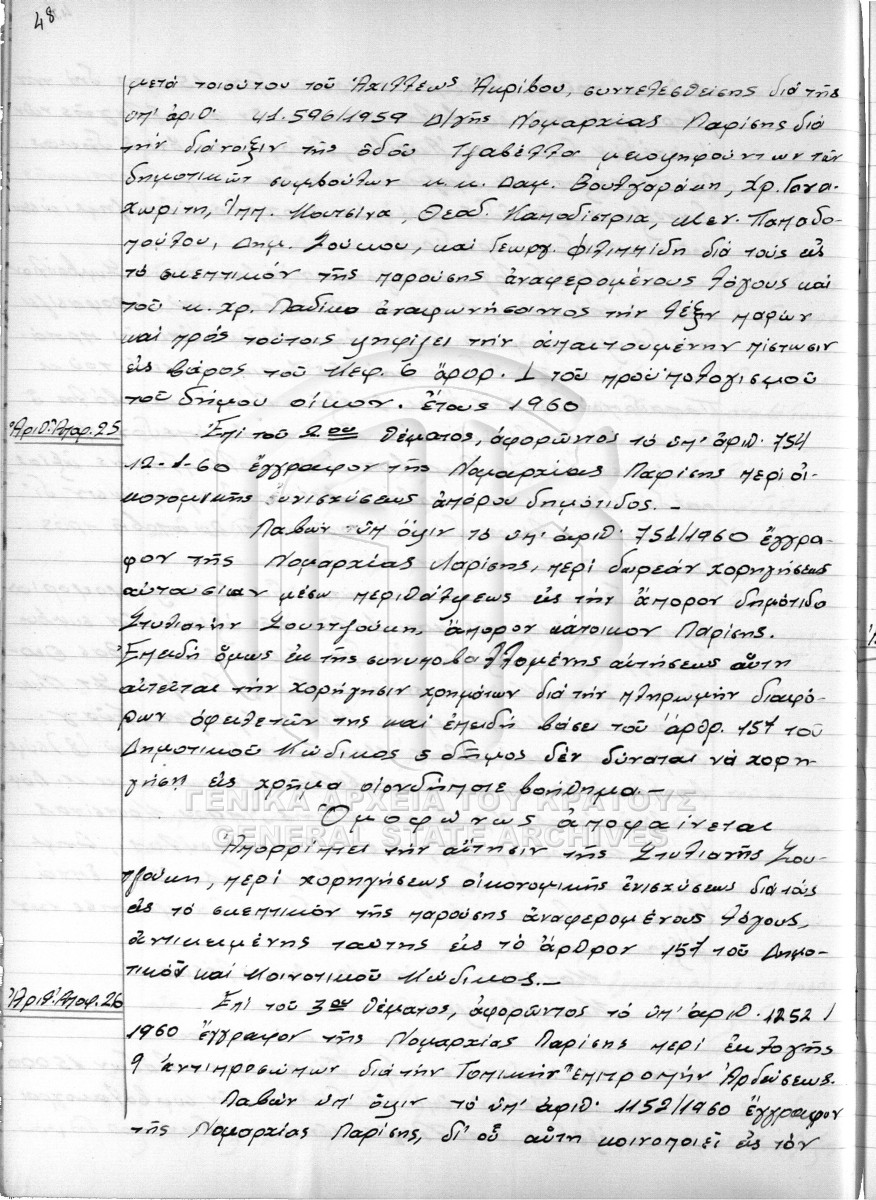 48
μετά τοιούτου τοῦ Ἀχιλλέως Ἀκρίβου, συντελεσθείσης διά τῆς
ὑπ' ἀριθ. 41.596/1959 Δ/γῆς Νομαρχίας Λαρίσης διά
τήν διάνοιξιν τῆς ὁδοῦ Τζαβέλλα μειοψηφούντων τῶν
δημοτικῶν συμβούλων κ.κ. Δαμ. Βουλγαράκη, Χρ. Γουα-
χωρίτη, Ἱππ. Κουτσίνα, Θεοδ. Καποδίστρια, Μεν. Παπαδο-
πούλου, Δημ. Σούκιου, καί Γεωργ. Φιλιππίδη διά τούς εἰς
τό σκεπτικόν τῆς παρούσης ἀναφερομένους λόγους καί
τοῦ κ. Χρ. Παδίκο ἀναφωνήσαντος τήν λέξιν παρών
καί πρός τούτοις ψηφίζει τήν ἀπαιτουμένην πίστωσιν
εἰς βάρος τοῦ Κεφ. 6 ἄρθρ. 1 τοῦ προϋπολογισμοῦ
τοῦ δήμου οἰκον. ἔτους 1960
Ἀριθ. Ἀποφ. 25
Ἐπί τοῦ 2ου θέματος, ἀφορῶντος τό ὑπ' ἀριθ. 751
12-1-60 ἔγγραφον τῆς Νομαρχίας Λαρίσης περί οἰ-
κονομικῆς ἐνισχύσεως ἀπόρου δημότιδος.-
Λαβών ὑπ' ὄψιν τό ὑπ' ἀριθ. 751/1960 ἔγγρα-
φον τῆς Νομαρχίας Λαρίσης, περί δωρεάν χορηγήσεως
αὐτουσίων μέσω περιθάλψεως εἰς τήν ἄπορον δημότιδα
Στυλιανήν Σουντζούκη, ἄπορον κάτοικον Λαρίσης.
Ἐπειδή ὅμως ἐκ τῆς συνυποβαλλομένης αἰτήσεως αὕτη
αἰτεῖται τήν χορήγησιν χρημάτων διά τήν πληρωμήν διαφό-
ρων ὀφειλετῶν της καί ἐπειδή βάσει τοῦ ἄρθρ. 157 τοῦ
Δημοτικοῦ Κώδικος ὁ δῆμος δέν δύναται νά χορη-
γήσῃ εἰς χρῆμα οἱονδήποτε βοήθημα.-
Ὁμοφώνως ἀποφαίνεται
Ἀπορρίπτει τήν αἴτησιν τῆς Στυλιανῆς Σου-
τζούκη, περί χορηγήσεως οἰκονομικῆς ἐνισχύσεως διά τούς
εἰς τό σκεπτικόν τῆς παρούσης ἀναφερομένους λόγους,
ἀντικειμένης ταύτης εἰς τό ἄρθρον 157 τοῦ Δημο-
τικοῦ καί Κοινοτικοῦ Κώδικος.-
Ἀριθ. Ἀποφ. 26
Ἐπί τοῦ 3ου θέματος, ἀφορῶντος τό ὑπ' ἀριθ. 1252/
1960 ἔγγραφον τῆς Νομαρχίας Λαρίσης περί ἐκλογῆς
9 ἀντιπροσώπων διά τήν Τοπικήν Ἐπιτροπήν Ἀρδεύσεως.
Λαβών ὑπ' ὄψιν τό ὑπ' ἀριθ. 1152/1960 ἔγγραφον
τῆς Νομαρχίας Λαρίσης, δι' οὗ αὕτη κοινοποιεῖ εἰς τόν
ΓΕΝΙΚΑ ΑΡΧΕΙΑ ΤΟΥ ΚΡΑΤΟΥΣ
GENERAL STATE ARCHIVES